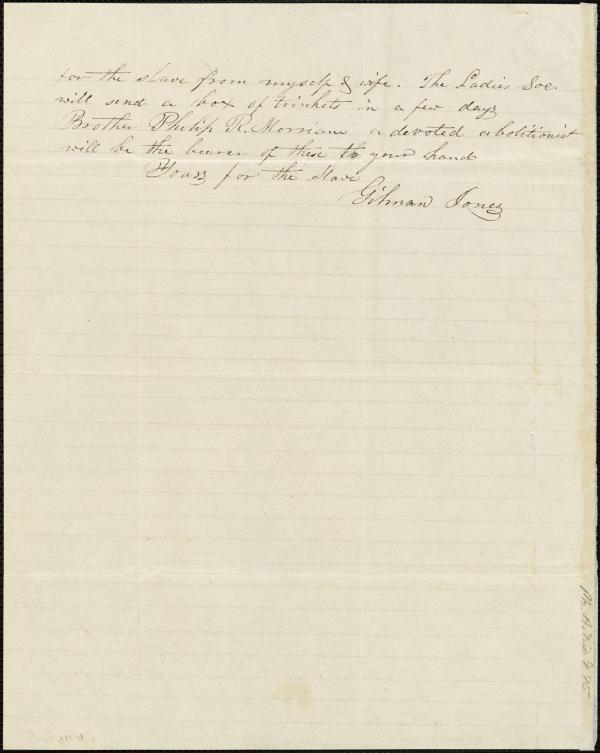 for the slave from myself & wife. The Ladies Soc.
will send a box of trinkets in a few days
Brother Philip R. Morriane a devoted abolitionist
will be the bearer of these to your hand
Yours for the slave
Gilman Jones